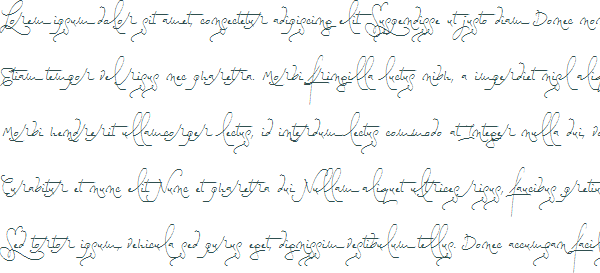 Lorem ipsum dolor sit amet, consectetur adipiscing elit. Suspendisse ut justo diam. Donec non
Etiam tempor vel risus nec pharetra. Morbi fringilla luctus nibh, a imperdiet nisl
Morbi hendrerit ullamcorper lectus, id interdum lectus commodo at. Integer nulla dui,
Curabitur et nunc elit. Nunc et pharetra dui. Nullam aliquet ultrices risus, faucibus
Sed tortor ipsum, vehicula sed purus eget, dignissim vestibulum tellus. Donec accumsan